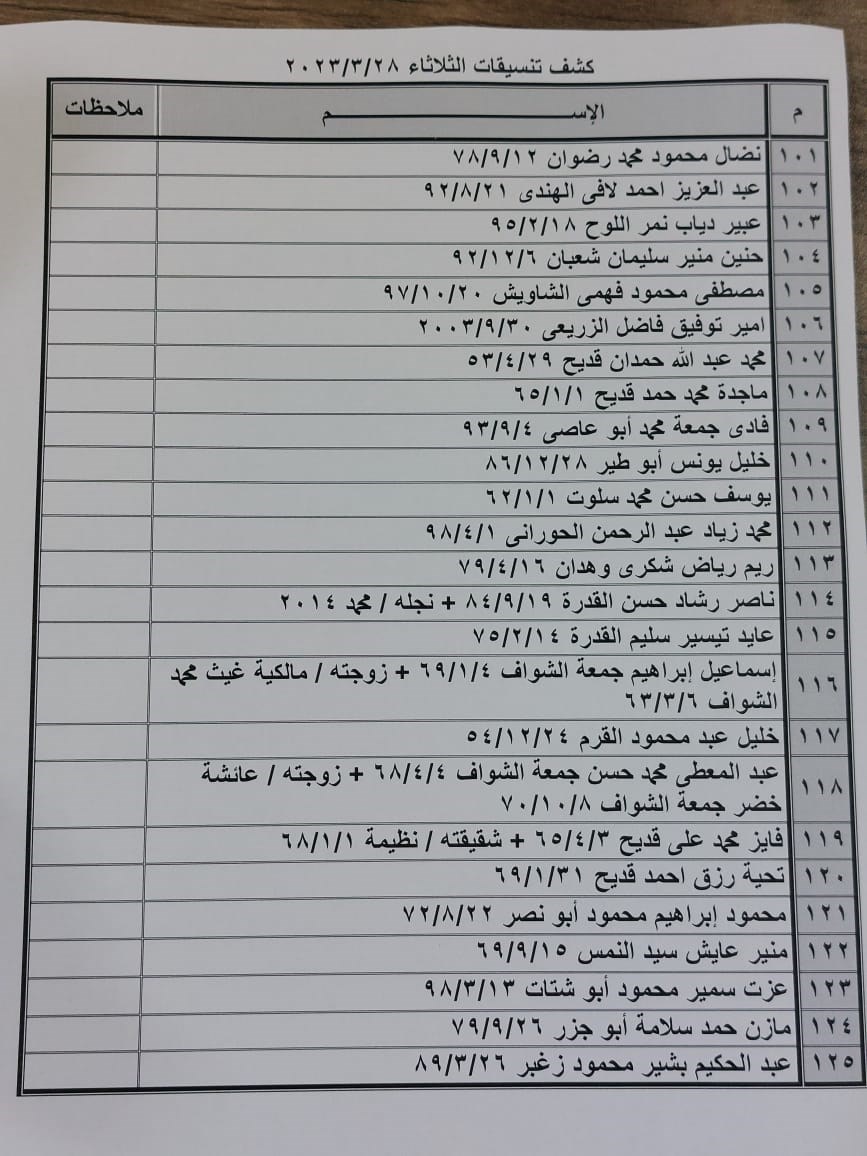 كشف تنسيقات الثلاثاء ٢٠٢٣/٣/٢٨
م الإســـــــم ملاحظات
١٠١ نضال محمود محمد رضوان ٧٨/٩/١٢
١٠٢ عبد العزيز احمد لافى الهندى ٩٢/٨/٢١
١٠٣ عبير دياب نمر اللوح ٩٥/٢/١٨
١٠٤ حنين منير سليمان شعبان ٩٢/١٢/٦
١٠٥ مصطفى محمود فهمى الشاويش ٩٧/١٠/٢٠
١٠٦ امير توفيق فاضل الزريعى ٢٠٠٣/٩/٣٠
١٠٧ محمد عبد الله حمدان قديح ٥٣/٤/٢٩
١٠٨ ماجدة محمد حمد قديح ٦٥/١/١
١٠٩ فادى جمعة محمد أبو عاصى ٩٣/٩/٤
١١٠ خليل يونس أبو طير ٨٦/١٢/٢٨
١١١ يوسف حسن محمد سلوت ٦٢/١/١
١١٢ محمد زياد عبد الرحمن الحورانى ٩٨/٤/١
١١٣ ريم رياض شكرى وهدان ٧٩/٤/١٦
١١٤ ناصر رشاد حسن القدرة ٨٤/٩/١٩ + نجله / محمد ٢٠١٤
١١٥ عايد تيسير سليم القدرة ٧٥/٢/١٤
١١٦ إسماعيل إبراهيم جمعة الشواف ٦٩/١/٤ + زوجته / مالكية غيث محمد
الشواف ٦٣/٣/٦
١١٧ خليل عبد محمود القرم ٥٤/١٢/٢٤
١١٨ عبد المعطى محمد حسن جمعة الشواف ٦٨/٤/٤ + زوجته / عائشة
خضر جمعة الشواف ٧٠/١٠/٨
١١٩ فايز محمد على قديح ٦٥/٤/٣ + شقيقته / نظيمة ٦٨/١/١
١٢٠ تحية رزق احمد قديح ٦٩/١/٣١
١٢١ محمود إبراهيم محمود أبو نصر ٧٢/٨/٢٢
١٢٢ منير عايش سيد النمس ٦٩/٩/١٥
١٢٣ عزت سمير محمود أبو شتات ٩٨/٣/١٣
١٢٤ مازن حمد سلامة أبو جزر ٧٩/٩/٢٦
١٢٥ عبد الحكيم بشير محمود زغبر ٨٩/٣/٢٦